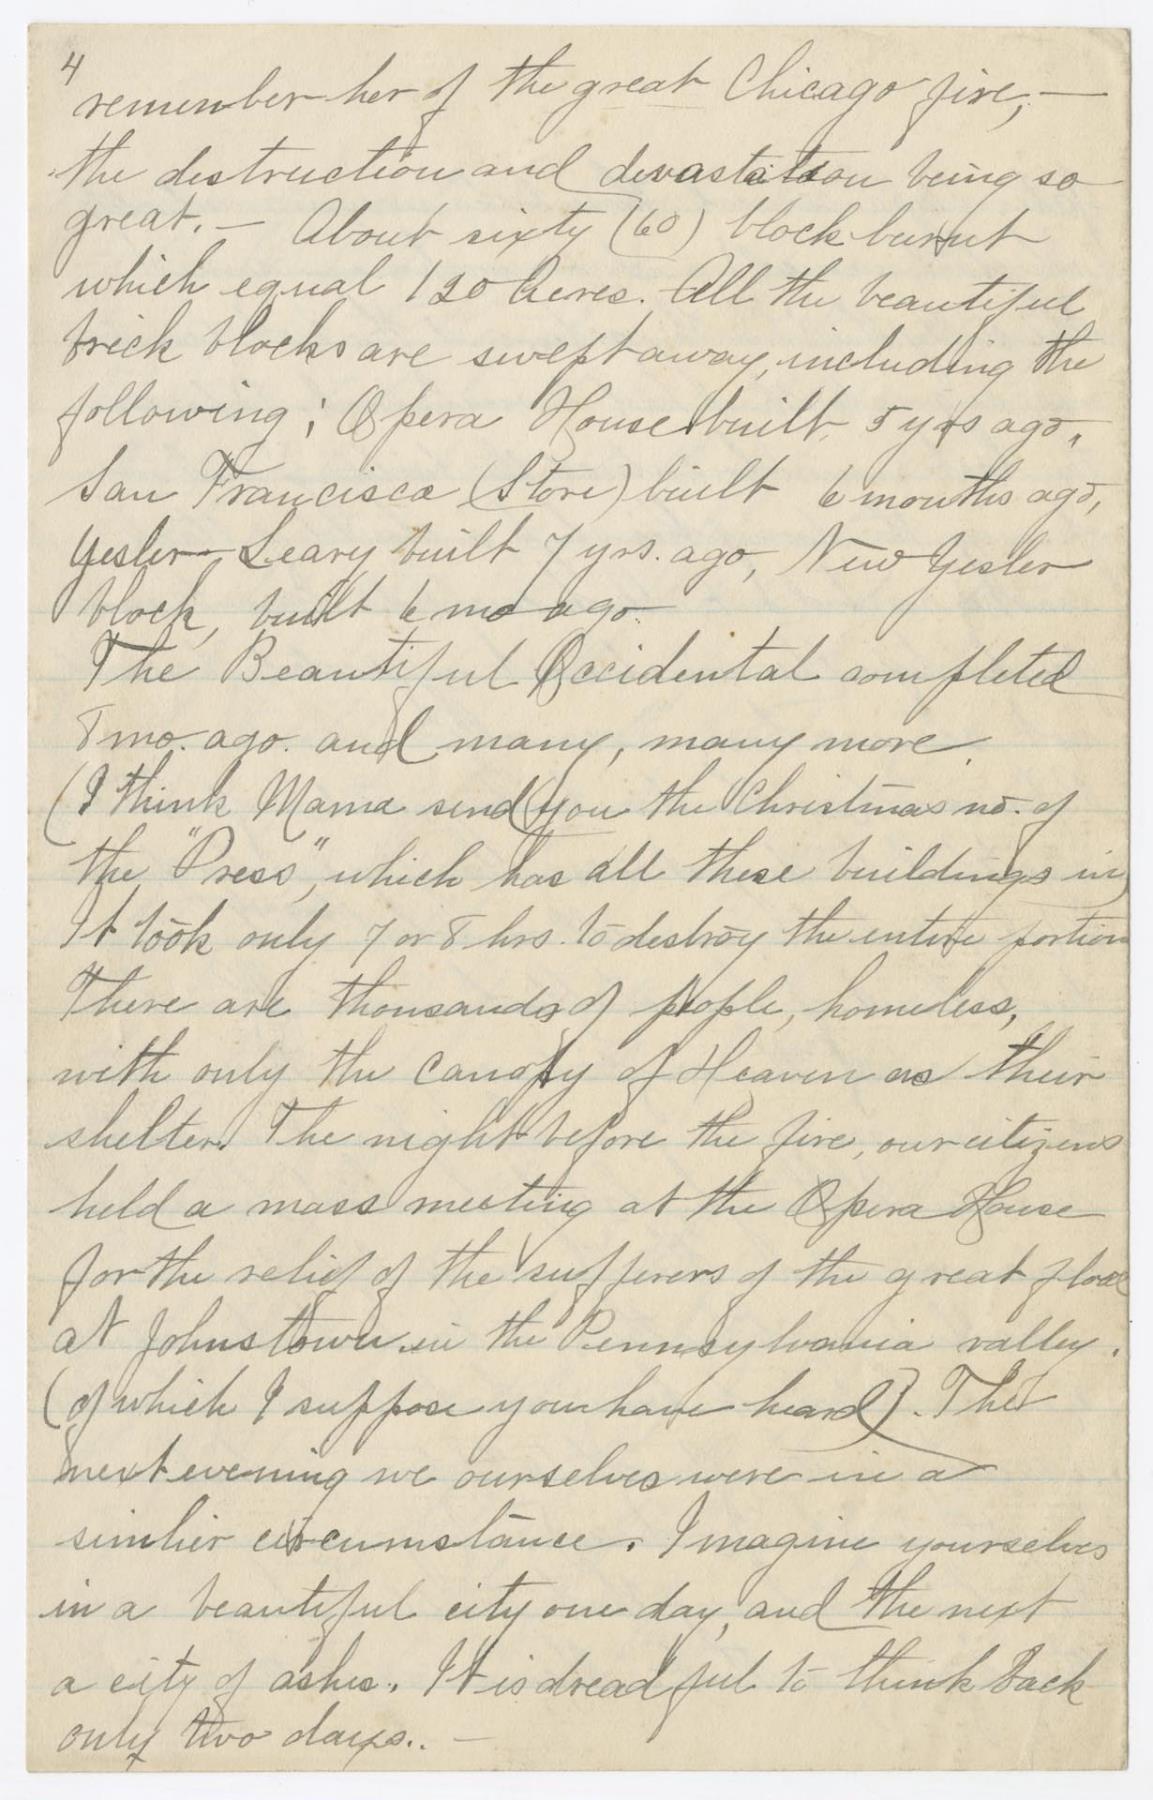 4
remember her of the great Chicago fire, —
the destruction and devastation being so
great. — About sixty (60) block burnt
which equal 120 Acres. All the beautiful
brick blocks are swept away, including the
following; Opera House built 5 yrs ago,
San Francisco (Store) built 6 months ago,
Yesler-Leary built 7 yrs. ago, New Yesler
block, built 6 mo ago.
The Beautiful Occidental completed
8 mo. ago. and many, many more.
(I think Mama send you the Christmas no. of
the "Press", which has all these buildings in)
It took only 7 or 8 hrs. to destroy the entire portion
There are thousands of people, homeless,
with only the canopy of Heaven as their
shelter. The night before the fire, our citizens
held a mass meeting at the Opera House
for the relief of the sufferers of the great flood
at Johnstown in the Pennsylvania valley.
(of which I suppose you have heard). The
next evening we ourselves were in a
similier circumstance. Imagine yourselves
in a beautiful city one day, and the next
a city of ashes. It is dreadful to think back
only two days.. —